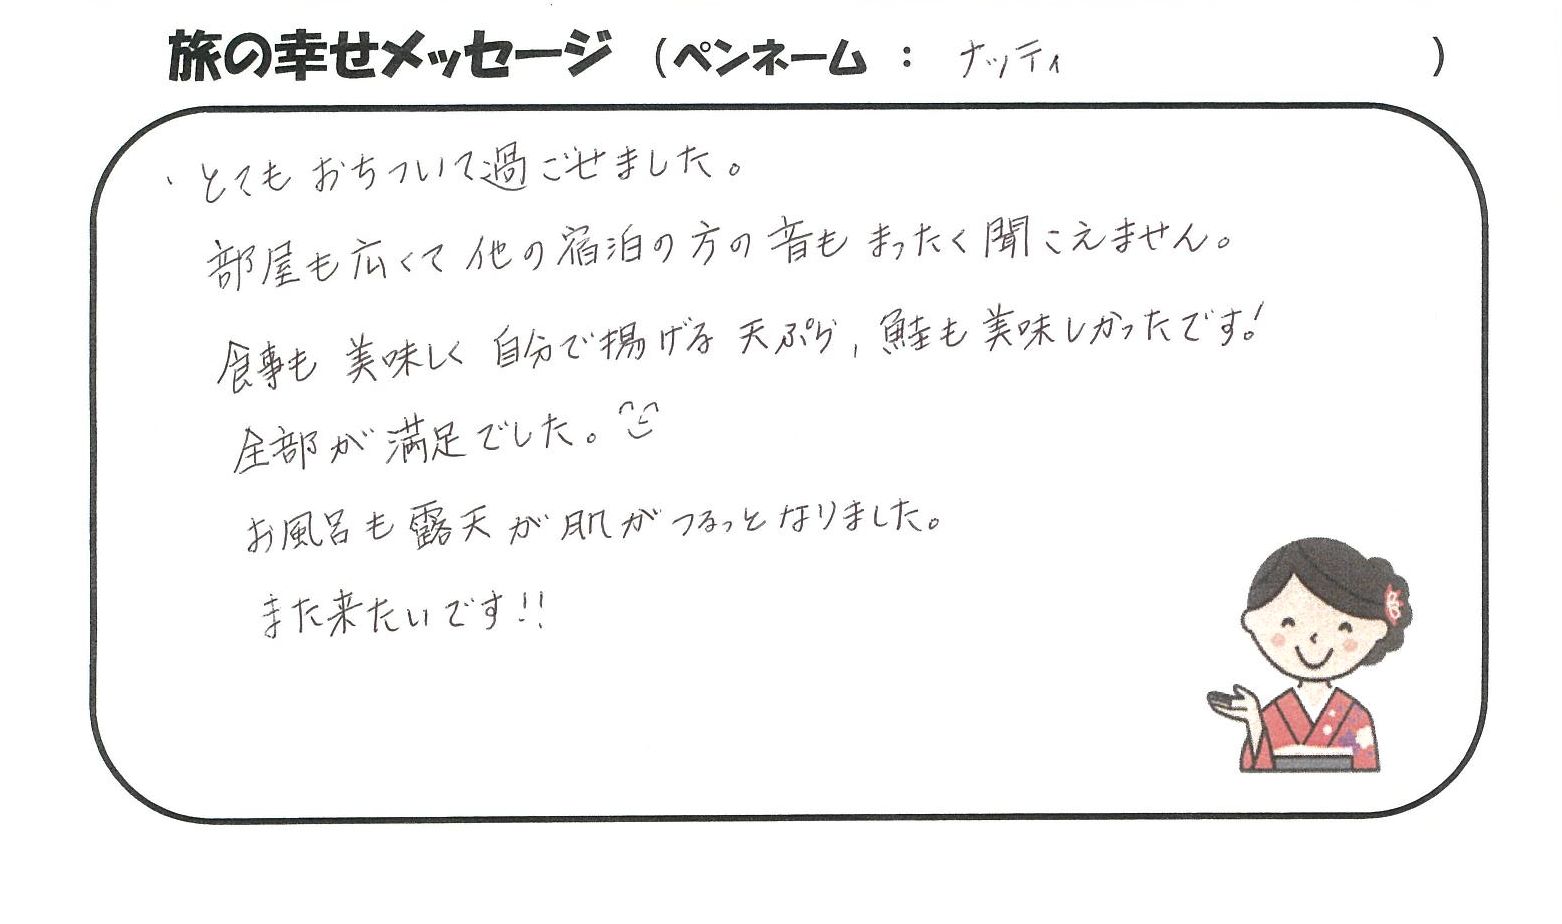 旅の幸せメッセージ （ペンネーム ： ナッティ ）
、とてもおちついて過ごせました。
部屋も広くて他の宿泊の方の音もまったく聞こえません。
食事も美味しく自分で揚げる天ぷら,鮭も美味しかったです!
全部が満足でした。
お風呂も露天が肌がつるっとなりました。
また来たいです!!